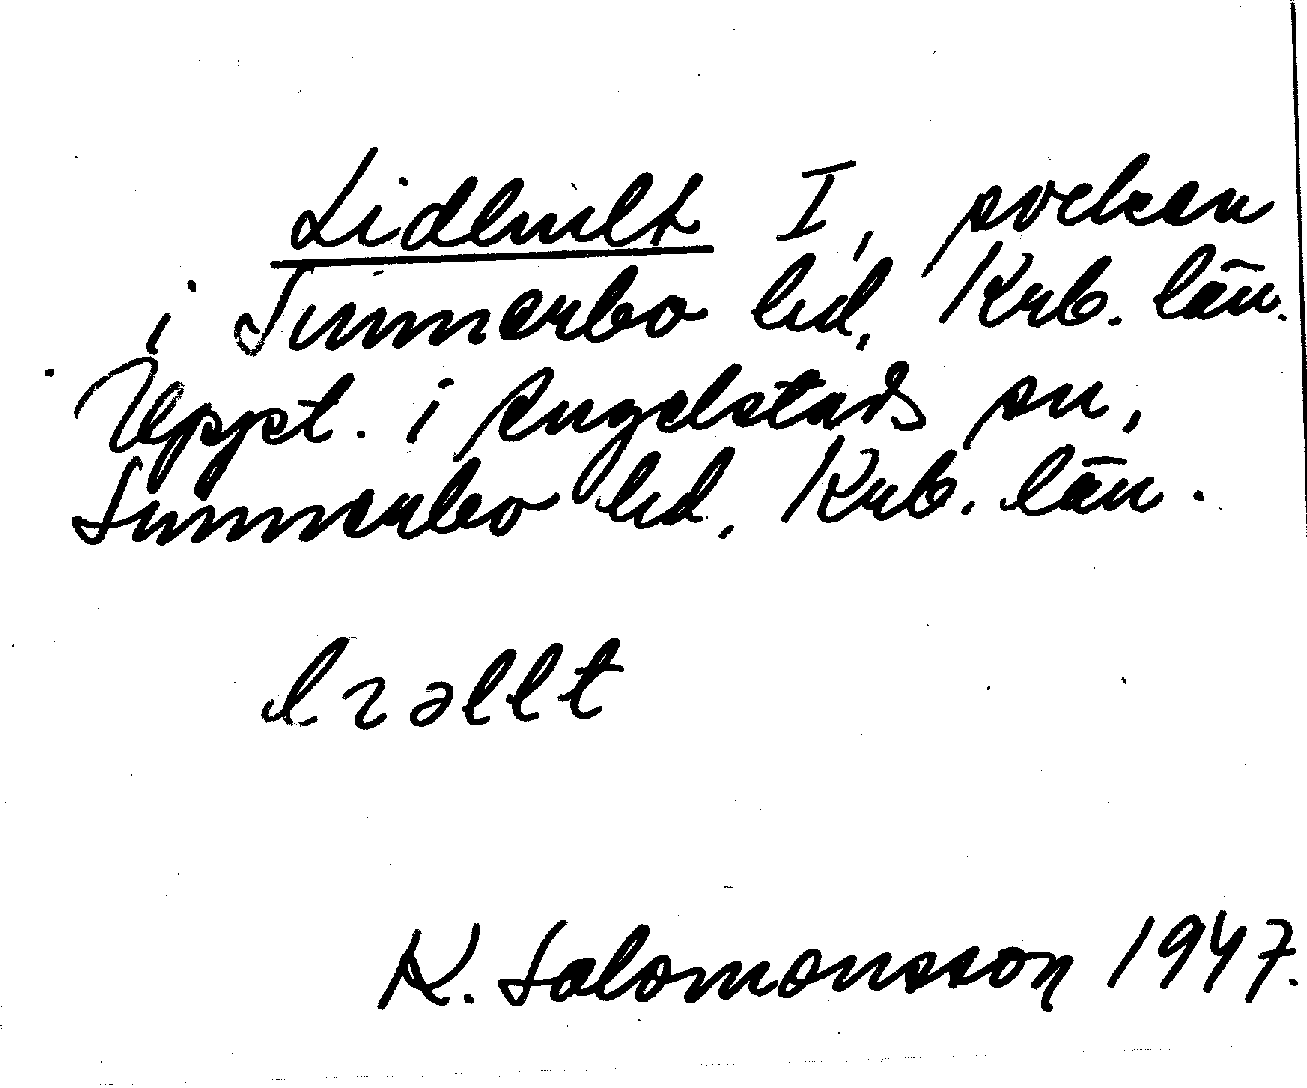 Lidhult I, socken
i Sunnerbo hd, Krb. län.
Uppt. i Angelstads sn,
Sunnerbo hd, Krb. län.
K. Salomonsson 1947.